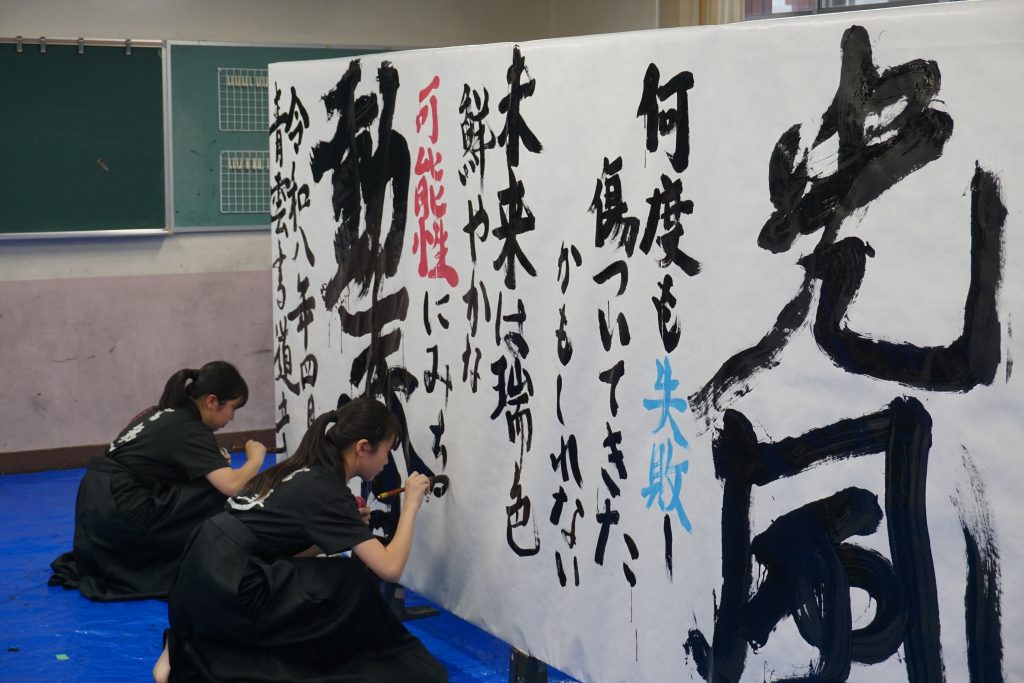 光風
何度も失敗し
傷ついてきた、
かもしれない
未来は瑞色
鮮やかな
可能性にみち
動
令和八年四月
青雲する道